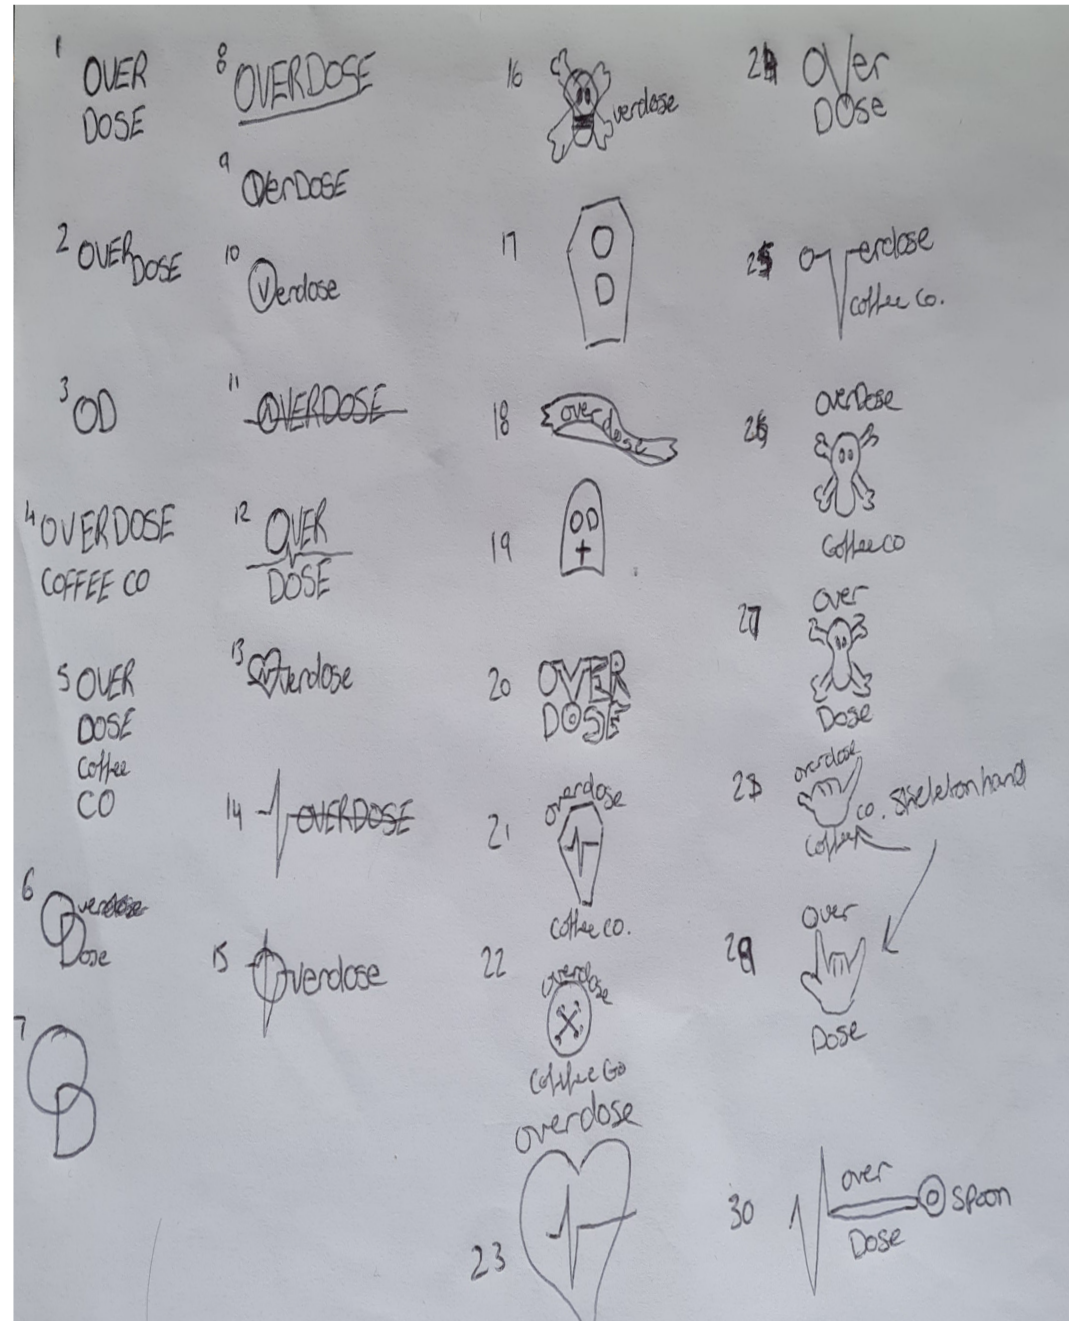 1
OVER
DOSE
2 OVER
DOSE
3 OD
4 OVERDOSE
COFFEE CO
5 OVER
DOSE
Coffee
CO
6 Overdose
Dose
7
OD
8 OVERDOSE
9 OVerDOSE
10 Overdose
11 OVERDOSE
12 OVER
DOSE
13 verdose
14 OVERDOSE
15 Overdose
16 verdose
17 O
D
18 over dose
19 OD
20 OVER
DOSE
21 overdose
Coffee co.
22 overdose
Coffee Co
overdose
23
24 OVer
DOse
25 o erdose
coffee co.
26 OverDose
Coffee co
27 Over
Dose
28 overdose
co. Skeleton hand
Coffee
29 Over
Dose
30 over
Spoon
Dose